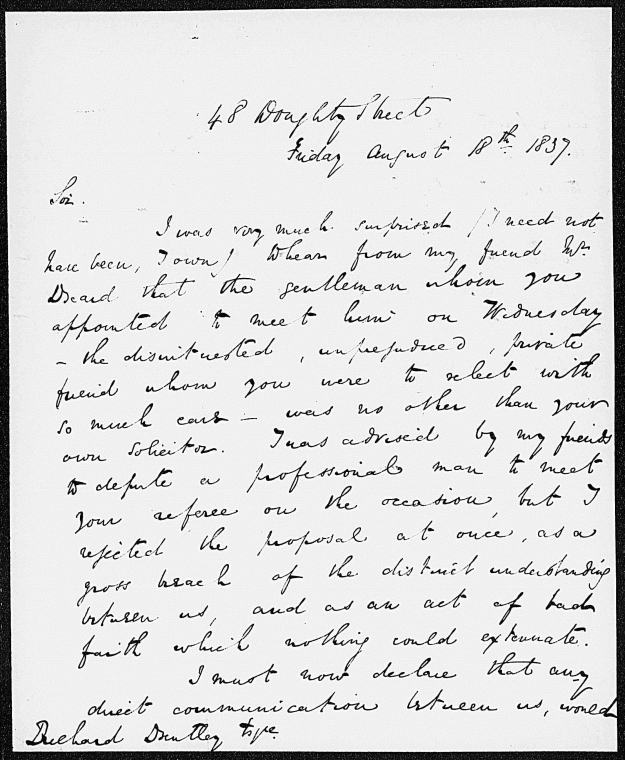 48 Doughty Street
Friday August 18th 1837.
Sir.
I was very much surprised (I need not
have been, I own) to hear from my friend Mr.
Beard that the gentleman whom you
appointed to meet him on Wednesday
– the disinterested, unprejudiced, private
friend whom you were to select with
so much care – was no other than your
own Solicitor. I was advised by my friends
to depute a professional man to meet
your referee on the occasion, but I
rejected the proposal at once, as a
gross breach of the distinct understanding
between us, and as an act of bad
faith which nothing could extenuate.
I must now declare that any
direct communication between us, would
Richard Bentley Esqre.